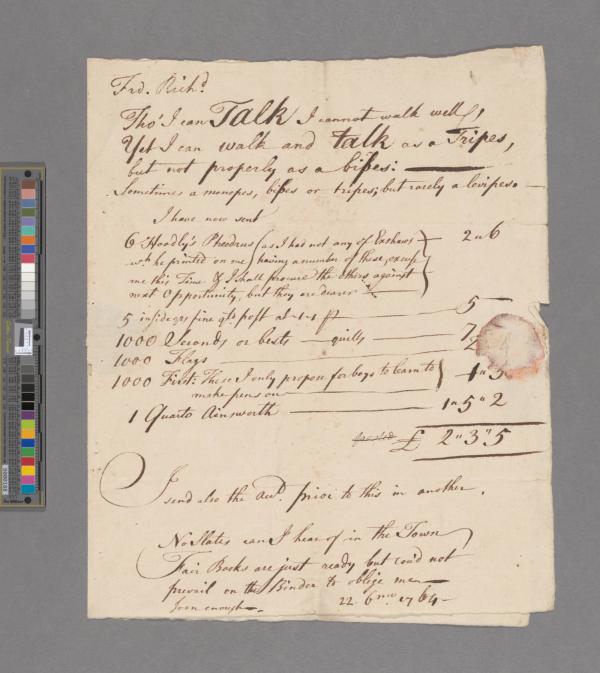 Frd. Richd.
Tho' I can Talk I cannot walk well,
Yet I can walk and talk as a Tripes,
but not properly as a bipes:
Sometimes a monopes, bipes or tripes, but rarely a levipes.
I have now sent
6 Hoadly's Phedrus (as I had not any of Exshaws 2 " 6
wch. he printed on me) having a number of those, excuse
me this Time & I shall procure the others against
next Opportunity, but they are dearer
5 insideges fine qto. post at 1-1 5
1000 Seconds or bests quills 7
1000 Flags 2
1000 First: These I only propose for boys to learn to
make pens on
1 Quarto Ainsworth 1 " 5 " 2
£ 2 " 3 " 5
I send also the acct. prior to this in another.
No Slates can I hear of in the Town
Fair Books are just ready but cou'd not
prevail on the Binder to oblige me
soon enough 22 6mo 1764